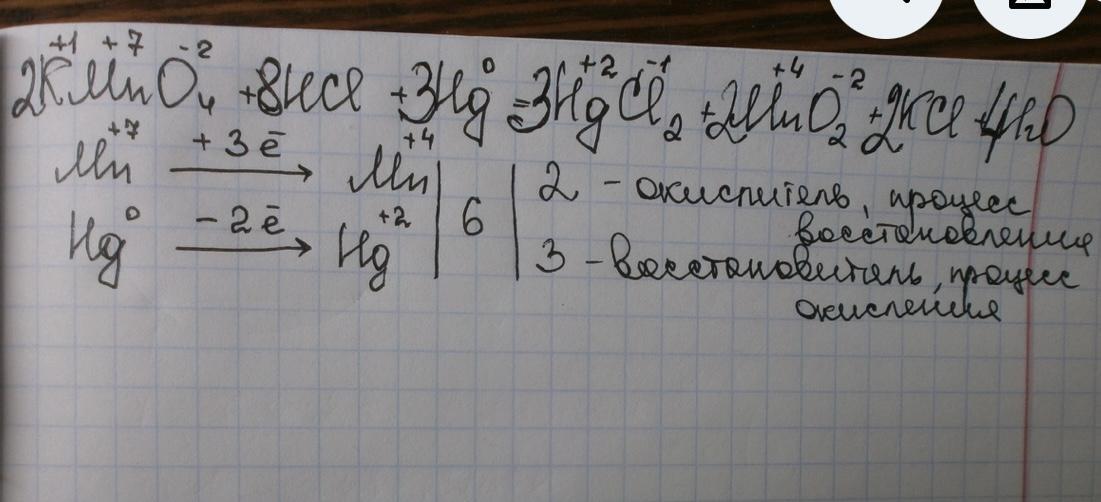 +1 +7 -2 0 +2 -1 +4 -2
2KMnO4 + 8HCl + 3Hg = 3HgCl2 + 2MnO2 + 2KCl + 4H2O
Mn+7 +3ē → Mn+4 | 6 | 2 - окислитель, процесс
восстановления
Hg0 -2ē → Hg+2 3 - восстановитель, процесс
окисления